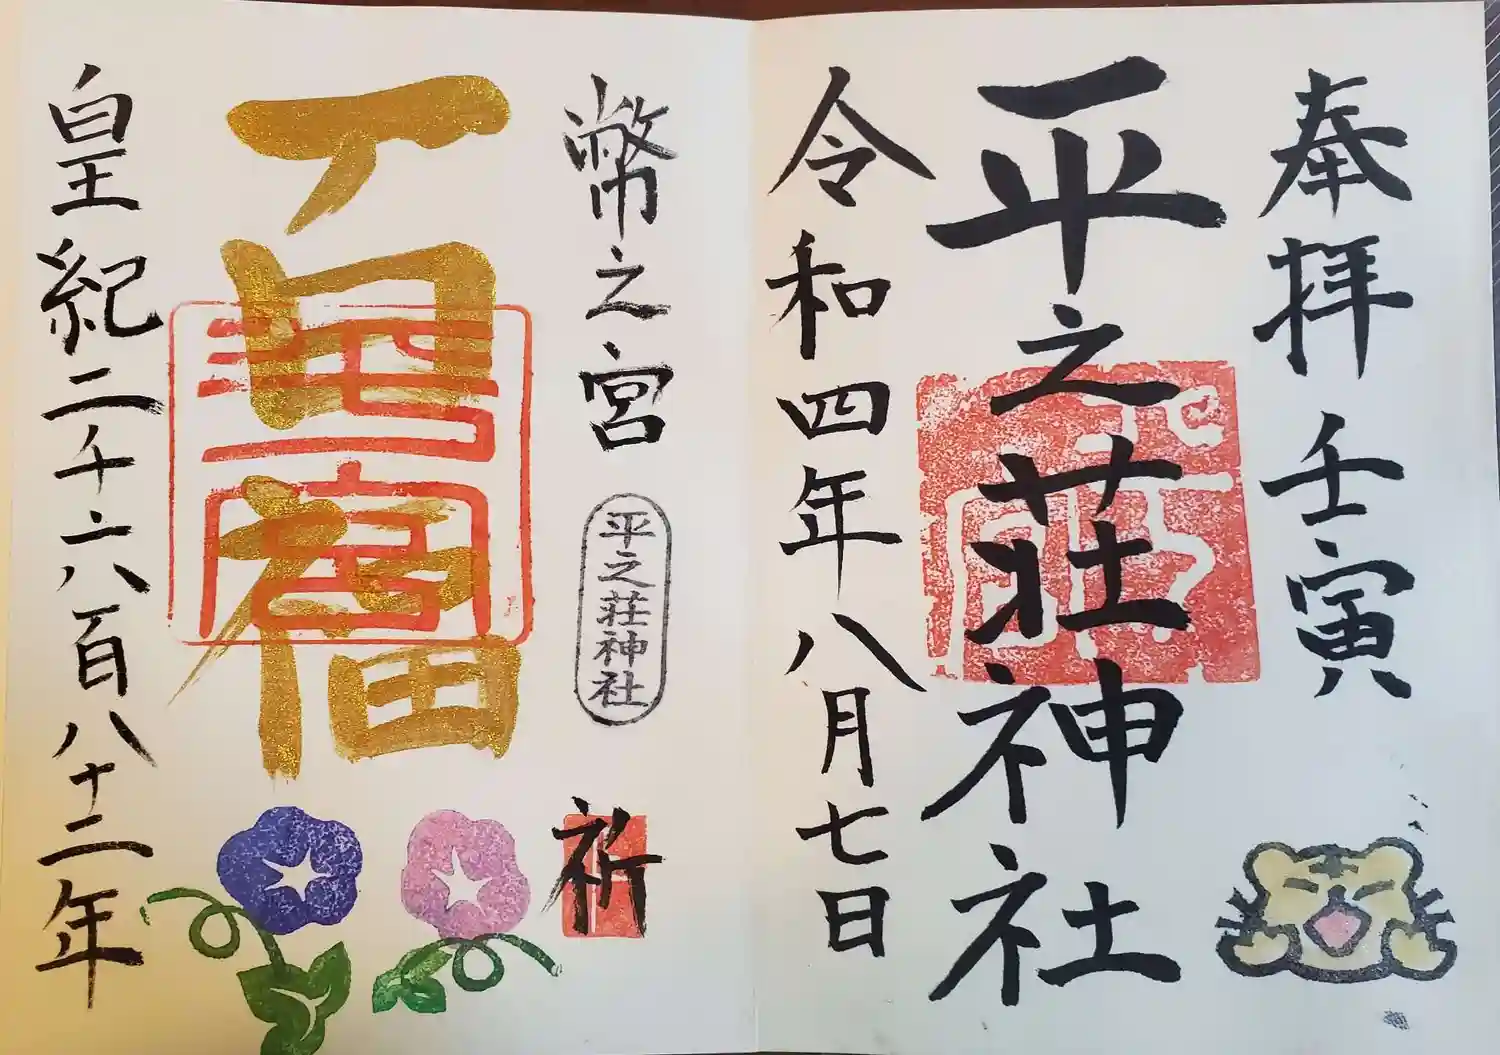 奉拝 壬寅
平之荘神社
令和四年八月七日
幣之宮
平之荘神社
祈
百福
皇紀二千六百八十二年